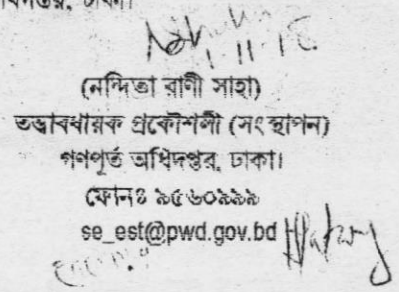 ঢাকা।
(নন্দিতা রাণী সাহা)
তত্ত্বাবধায়ক প্রকৌশলী (সংস্থাপন)
গণপূর্ত অধিদপ্তর, ঢাকা।
ফোনঃ ৯৫৬০৯৯৯
se_est@pwd.gov.bd